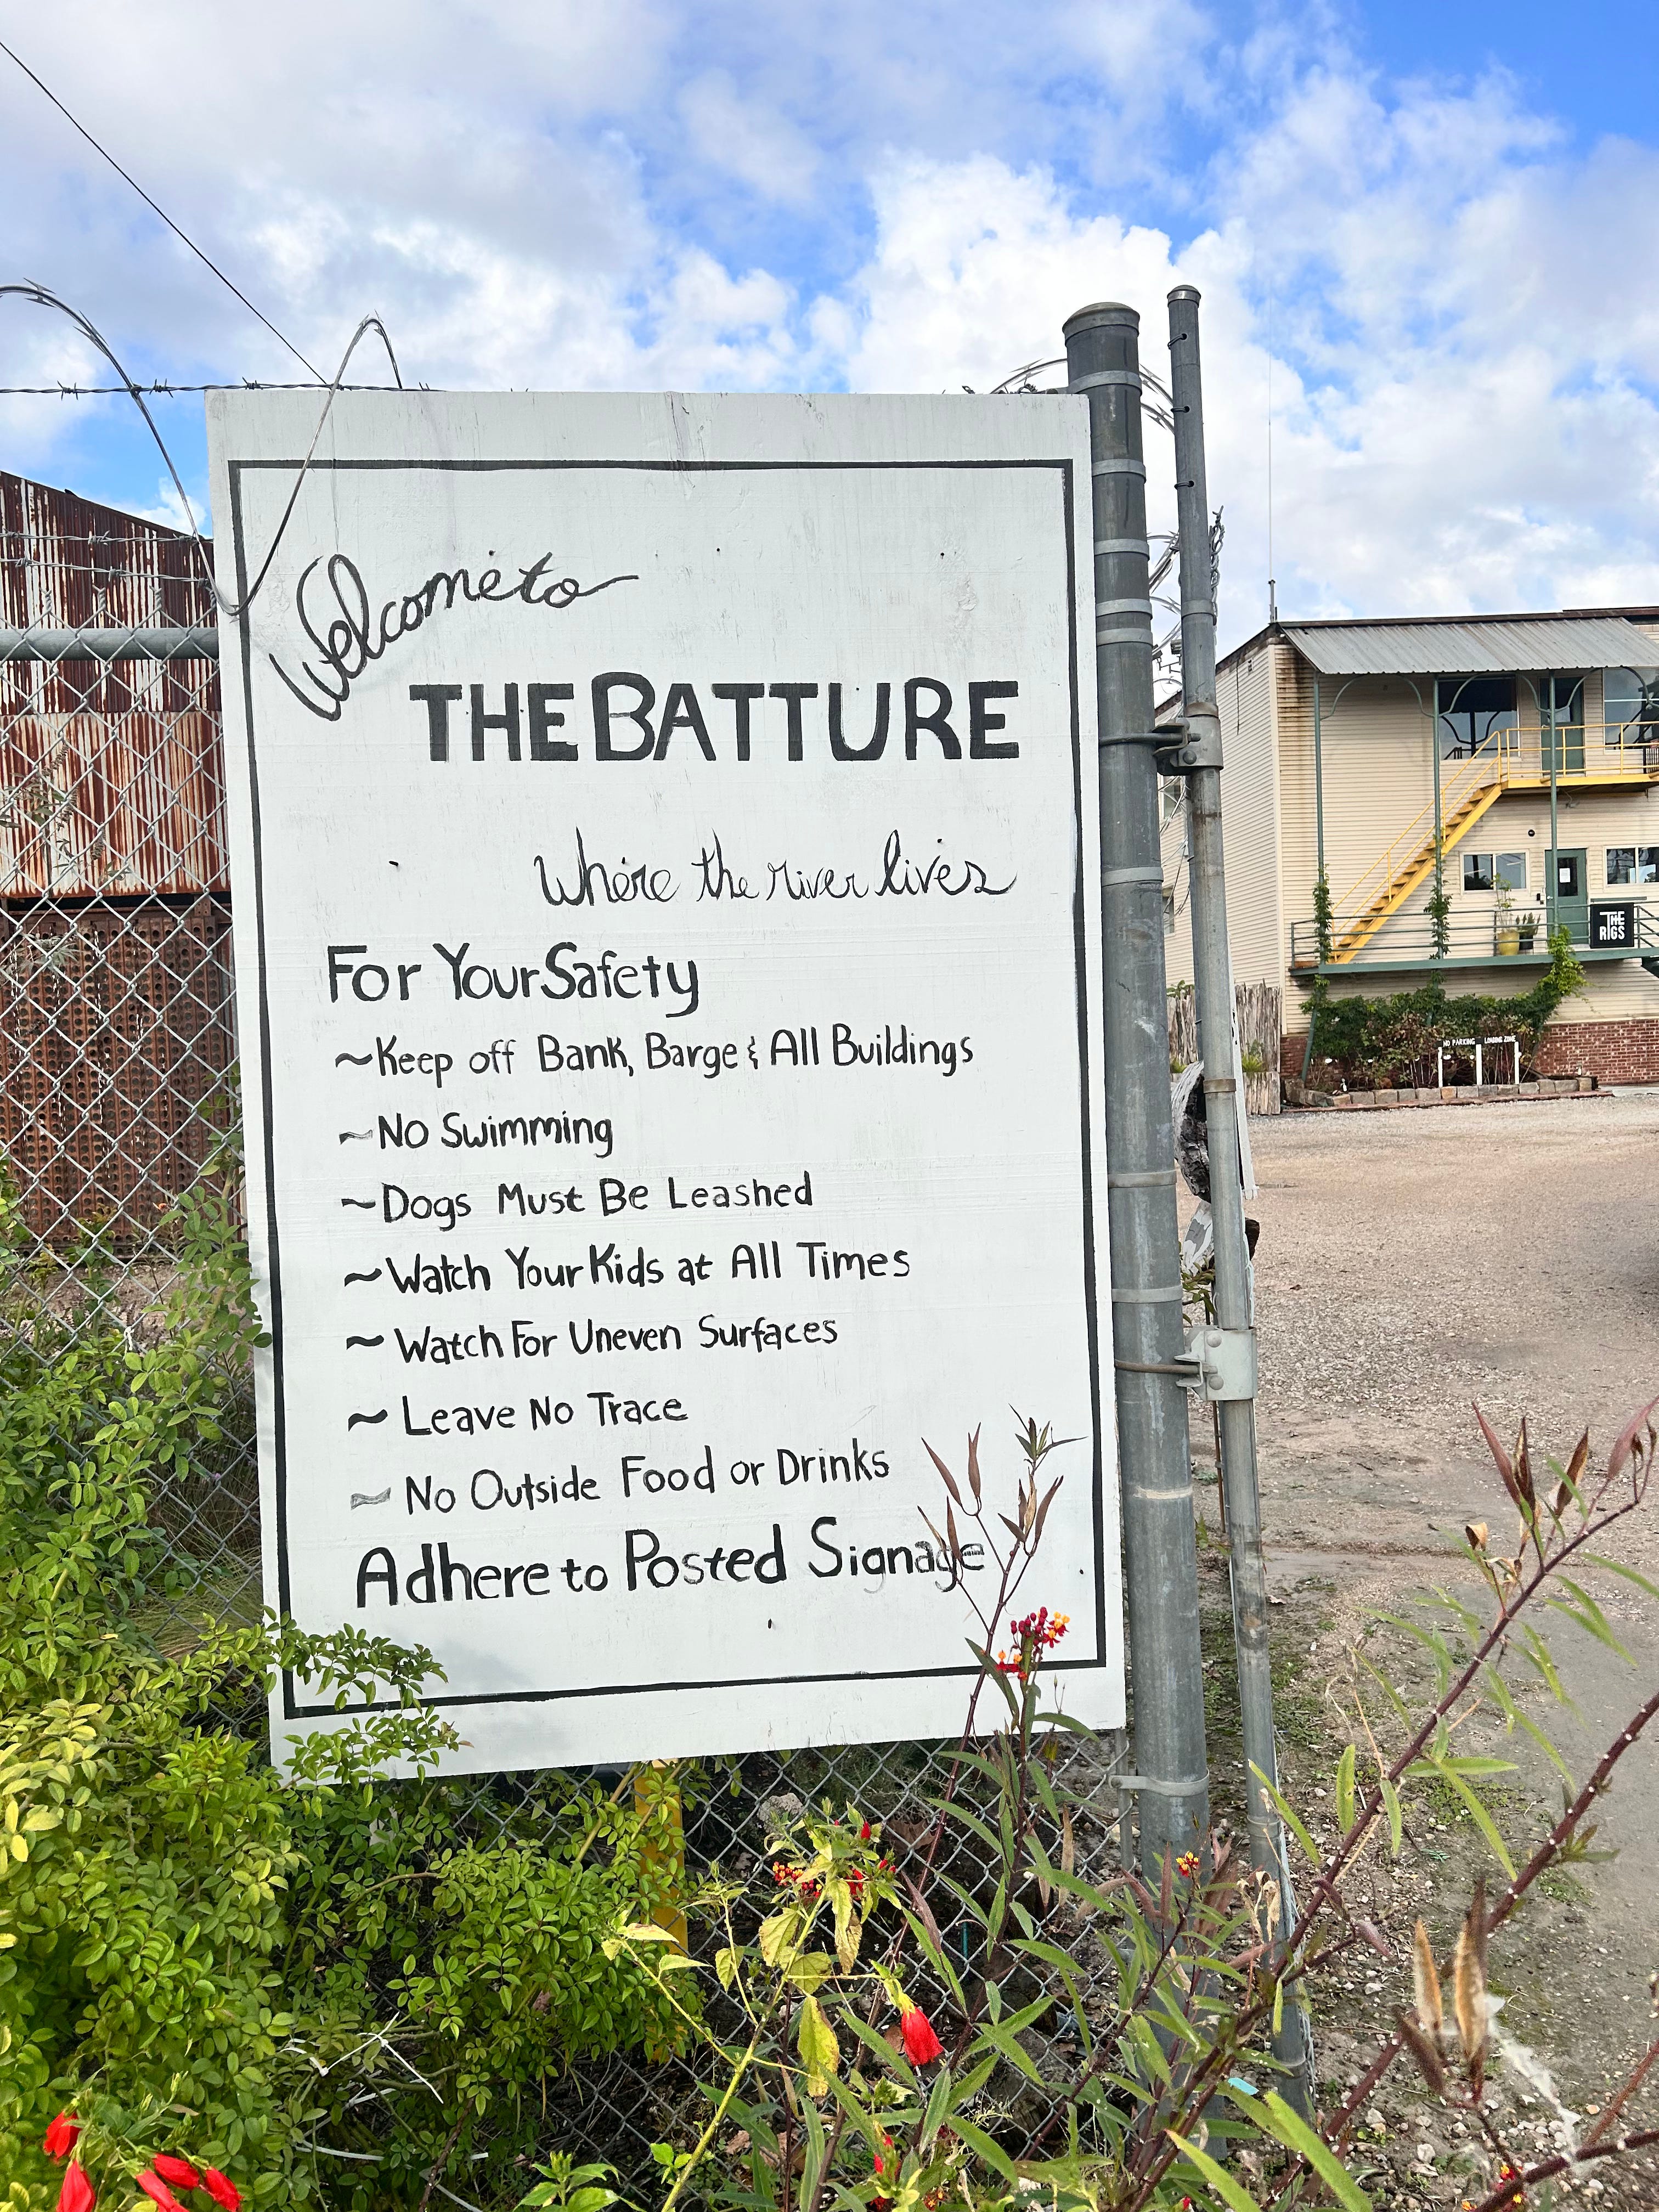 Welcome to
THE BATTURE
where the river lives
For Your Safety
~Keep off Bank, Barge & All Buildings
~No Swimming
~Dogs Must Be Leashed
~Watch Your Kids at All Times
~Watch For Uneven Surfaces
~Leave No Trace
~No Outside Food or Drinks
Adhere to Posted Signage
THE
RIGS
NO PARKING LOADING ZONE